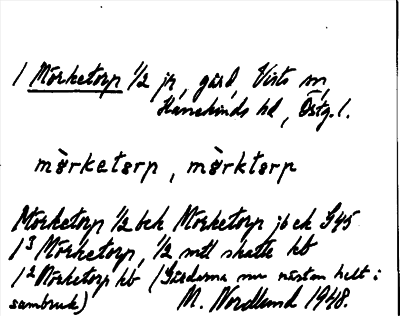 1 Mörketorp 1/2 jr, gård, Vists sn,
Hanekinds hd, Östg. l.
mö̀rketorp, mö̀rktorp
Mörketorp 1/2 bck Mörketorp jb ck G45
1³ Mörketorp, 1/2 mtl skatte hb
1² Mörketorp hb (Gårdarna nu nästan helt i
sambruk) M. Nordlund 1948.